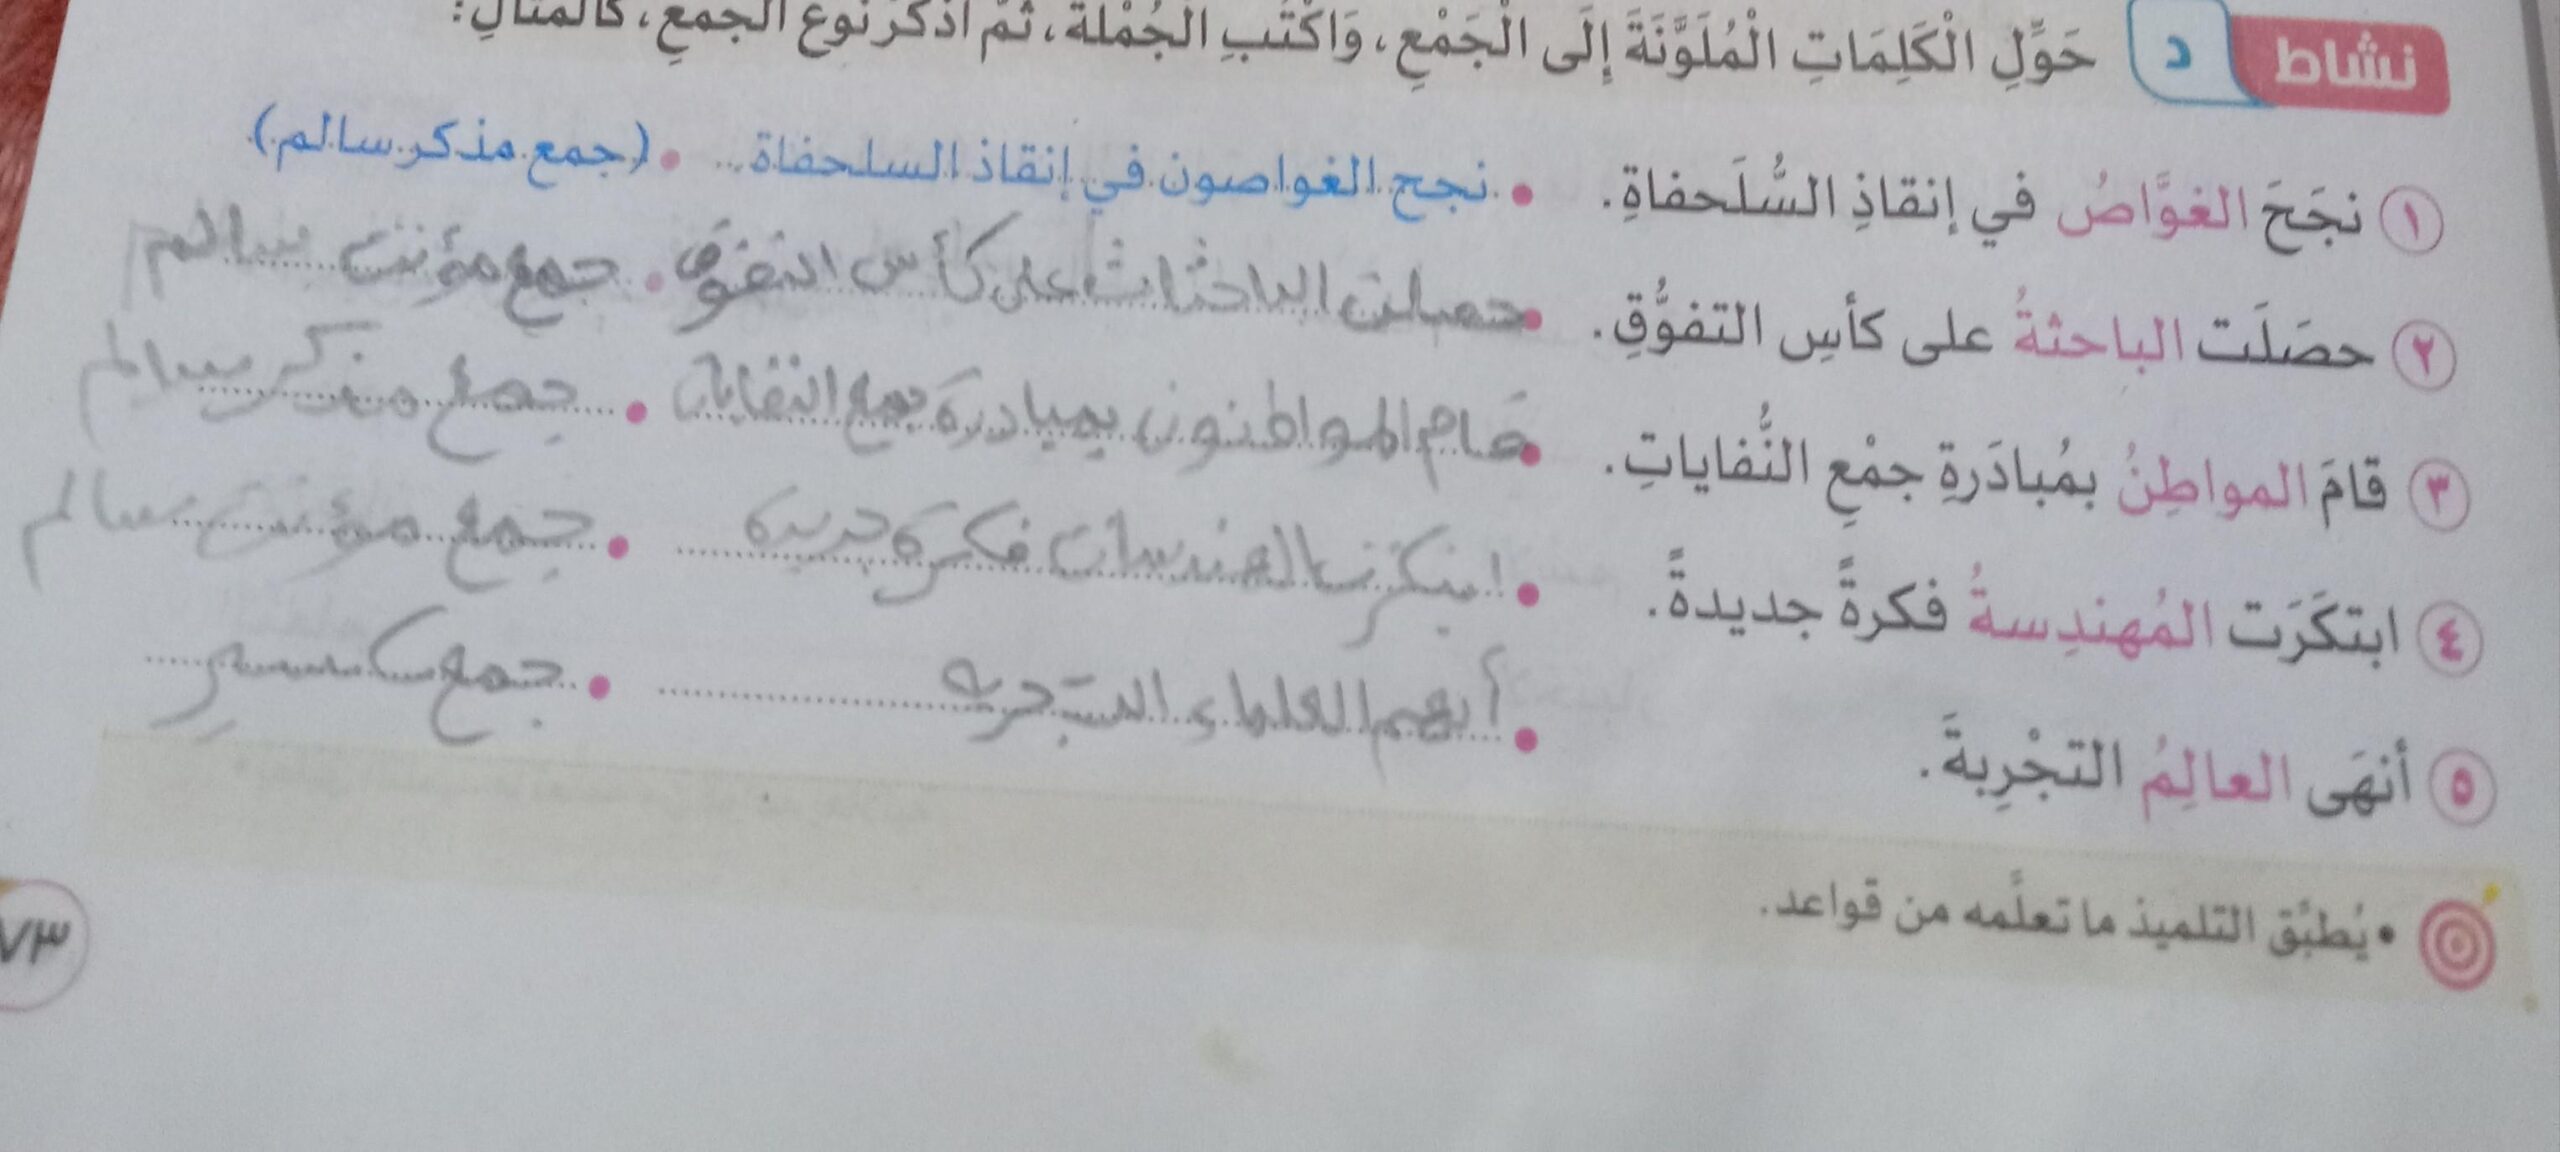 نشاط د حَوِّلِ الْكَلِمَاتِ الْمُلَوَّنَةَ إِلَى الْجَمْعِ، وَاكْتُبِ الْجُمْلَةَ، ثُمَّ اذْكُرْ نَوْعَ الْجَمْعِ، كَالْمِثَالِ:
١ نجَحَ الغوَّاصُ في إنقاذِ السُّلَحفاةِ. • نجح الغواصون في إنقاذ السلحفاة • (جمع مذكر سالم)
٢ حصَلَت الباحثةُ على كأسِ التفوُّقِ. • حصلت الباحثات على كأس التفوق • جمع مؤنث سالم
٣ قامَ المواطِنُ بمُبادَرةِ جمْعِ النُّفاياتِ. • قام المواطنون بمبادرة جمع النفايات • جمع مذكر سالم
٤ ابتكَرَت المُهندِسةُ فكرةً جديدةً. • ابتكرت المهندسات فكرة جديدة • جمع مؤنث سالم
٥ أنهَى العالِمُ التجْرِبةَ. • العلماء • جمع تكسير
• يُطبِّق التلميذ ما تعلَّمه من قواعد.
٧٣